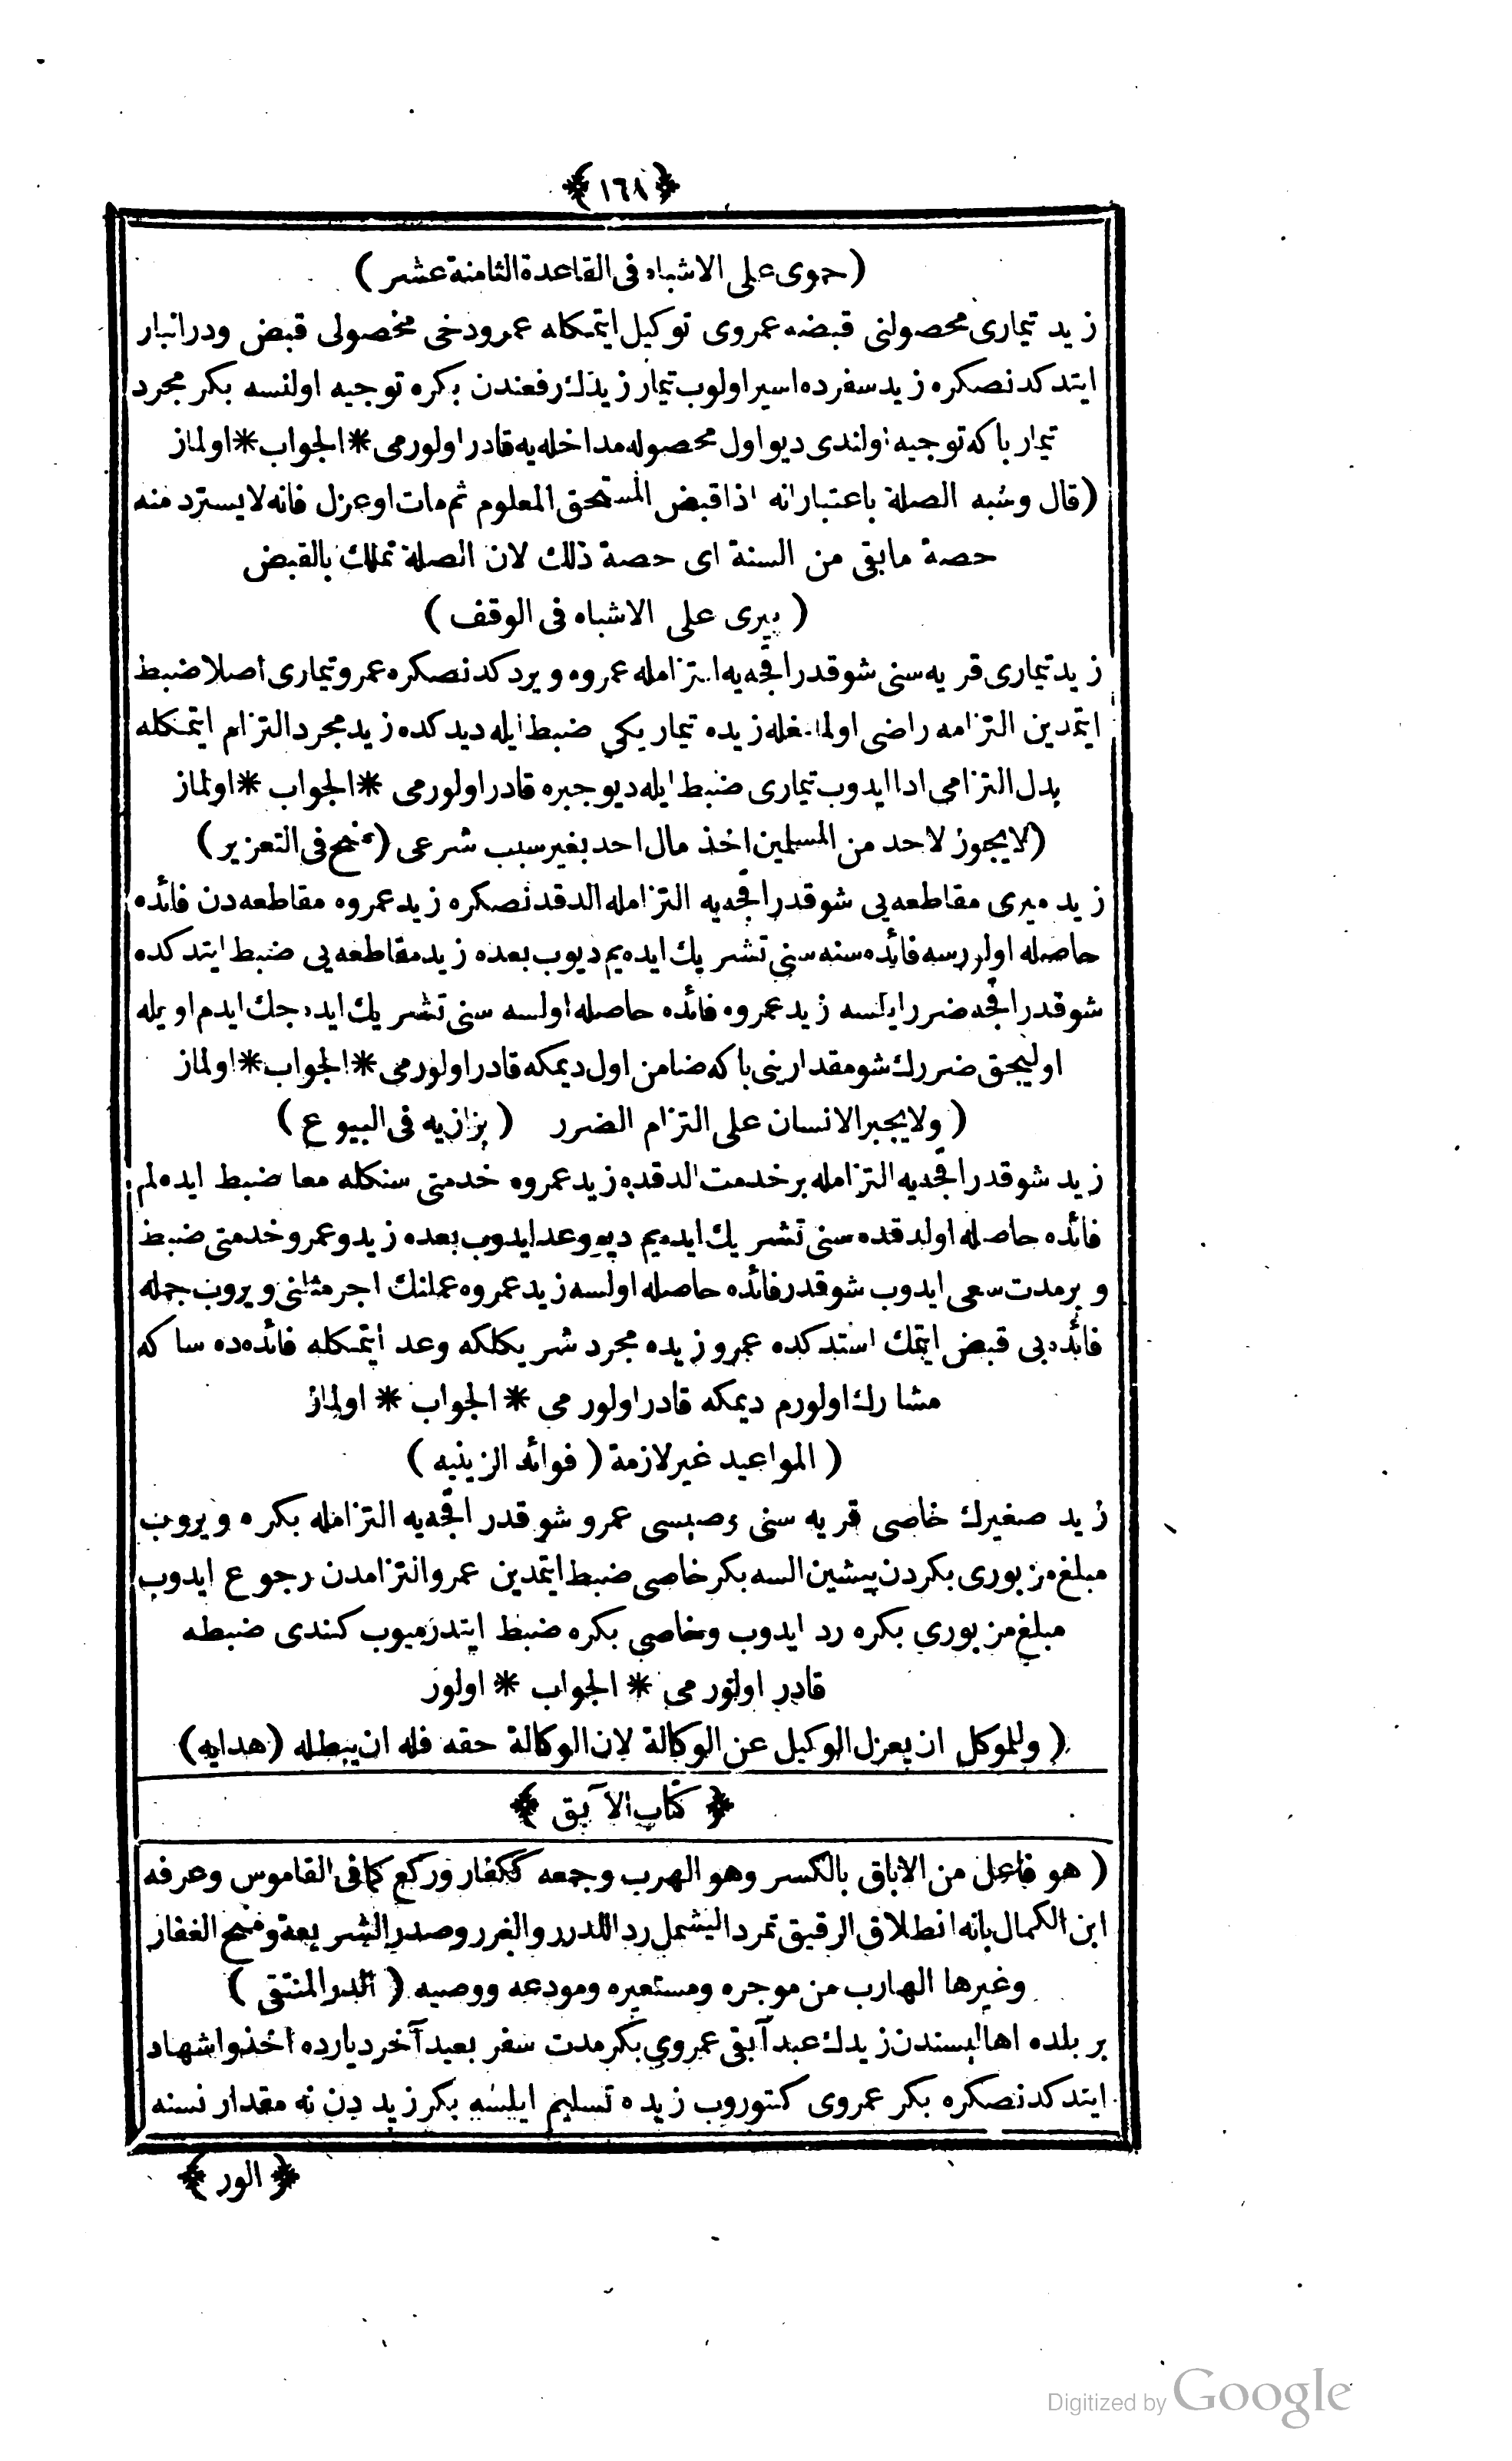 ﴿١٦٨﴾
(حموى على الاشباه فى القاعدة الثامنة عشر)
زيد تيمارى محصولنى قبضه عمروى توكيل ايتمكله عمرو دخى محصولى قبض ودر انبار
ايتدكدنصكره زيد سفرده اسير اولوب تيمار زيدك رفعندن بكره توجيه اولنسه بكر مجرد
تيمار باكه توجيه اولندى ديو اول محصوله مداخله يه قادر اولورمى * الجواب * اولماز
(قال وشبه الصلة باعتبار انه اذا قبض المستحق المعلوم ثم مات او عزل فانه لا يسترد منه
حصة مابقى من السنة اى حصة ذلك لان الصلة تملك بالقبض
(بيرى على الاشباه فى الوقف)
زيد تيمارى قريه سنى شو قدر اقچه يه التزامله عمروه ويردكدنصكره عمرو تيمارى اصلا ضبط
ايتمدين التزامه راضى اولمامغله زيده تيمار يكى ضبط ايله ديدكده زيد مجرد التزام ايتمكله
بدل التزامى ادا ايدوب تيمارى ضبط ايله ديو جبره قادر اولورمى * الجواب * اولماز
(لا يجوز لاحد من المسلمين اخذ مال احد بغير سبب شرعى (منح فى التعزير)
زيد ميرى مقاطعه يى شو قدر اقچه يه التزامله الدقدنصكره زيد عمروه مقاطعه دن فائده
حاصله اولورسه فائده سنه سنى تشريك ايده يم ديوب بعده زيد مقاطعه يى ضبط ايتدكده
شو قدر اقچه ضرر ايلسه زيد عمروه فائده حاصله اولسه سنى تشريك ايده جك ايدم اويله
اوليجق ضررك شو مقدارينى باكه ضامن اول ديمكه قادر اولورمى * الجواب * اولماز
(ولا يجبر الانسان على التزام الضرر (بزازيه فى البيوع)
زيد شو قدر اقچه يه التزامله بر خدمت الدقده زيد عمروه خدمتى سنكله معا ضبط ايده لم
فائده حاصله اولدقده سنى تشريك ايده يم ديو وعد ايدوب بعده زيد و عمرو خدمتى ضبط
و بر مدت سعى ايدوب شو قدر فائده حاصله اولسه زيد عمروه عملنك اجر مثلنى ويروب جمله
فائده يى قبض ايتمك استدكده عمرو زيده مجرد شريكلكه وعد ايتمكله فائده ده ساكه
مشارك اولورم ديمكه قادر اولورمى * الجواب * اولماز
(المواعيد غير لازمة (فوائد الزينيه)
زيد صغيرك خاصى قريه سنى وصيسى عمرو شو قدر اقچه يه التزامله بكره ويروب
مبلغ مزبورى بكردن پيشين السه بكر خاصى ضبط ايتمدين عمرو التزامدن رجوع ايدوب
مبلغ مزبورى بكره رد ايدوب وخاصى بكره ضبط ايتدرميوب كندى ضبطه
قادر اولورمى * الجواب * اولور
(وللموكل ان يعزل الوكيل عن الوكالة لان الوكالة حقه فله ان يبطله (هدايه)
﴿كتاب الآبق﴾
(هو فاعل من الاباق بالكسر وهو الهرب وجمعه ككفار وركع كما فى القاموس وعرفه
ابن الكمال بانه انطلاق الرقيق تمردا ليشمل رد الدرر والغرر وصدر الشريعة ومنح الغفار
وغيرها الهارب من موجره ومستعيره ومودعه ووصيه (الدر المنتقى)
بر بلده اهاليسندن زيدك عبد آبقى عمروى بكر مدت سفر بعيد آخر ديارده اخذ واشهاد
ايتدكدنصكره بكر عمروى كتوروب زيده تسليم ايلسه بكر زيد دن نه مقدار نسنه
﴿الور﴾
Digitized by Google